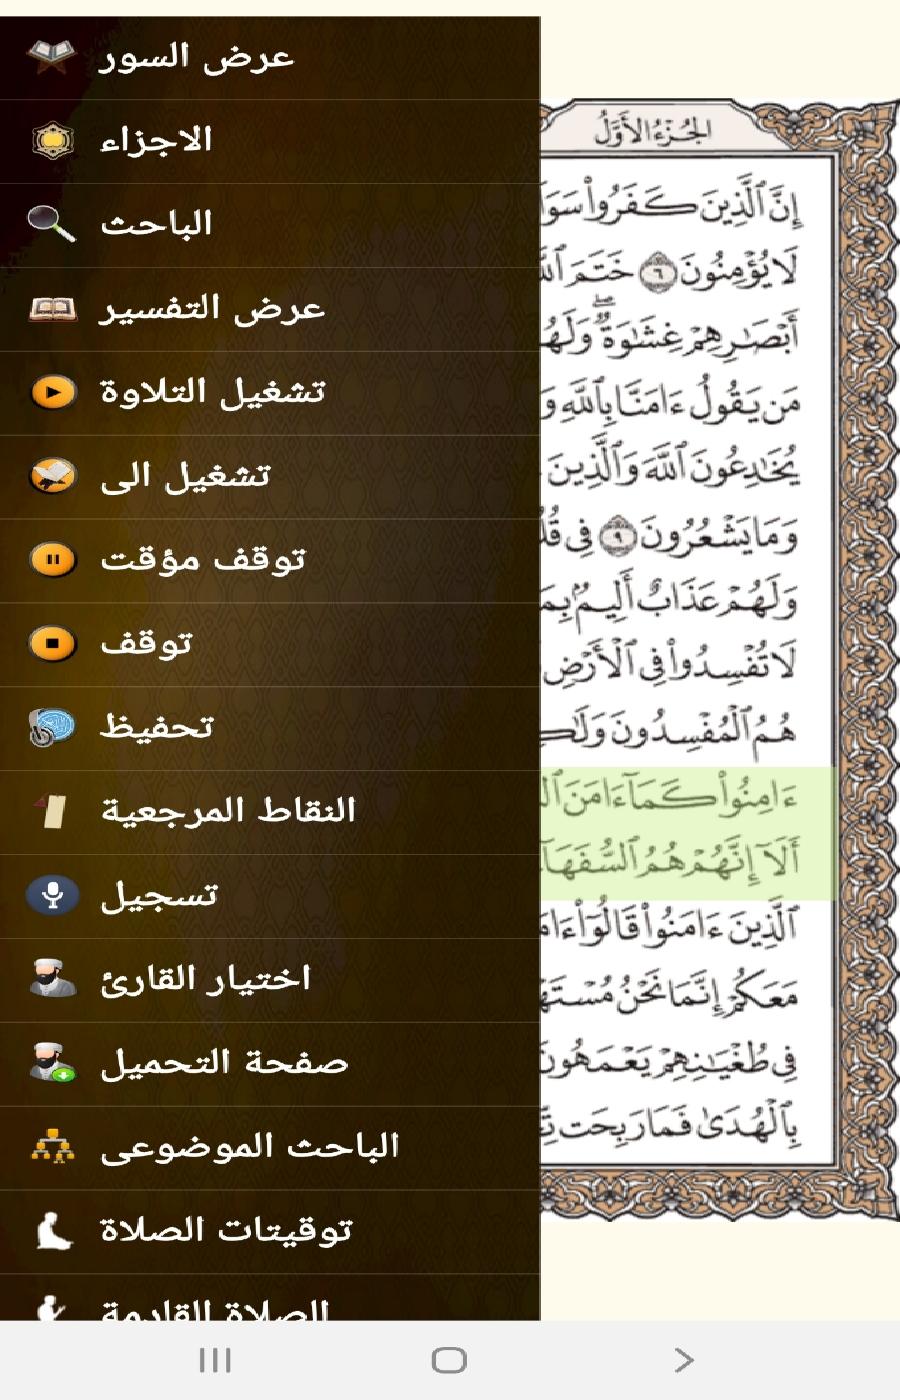 عرض السور
الاجزاء
الباحث
عرض التفسير
تشغيل التلاوة
تشغيل الى
توقف مؤقت
توقف
تحفيظ
النقاط المرجعية
تسجيل
اختيار القارئ
صفحة التحميل
الباحث الموضوعى
توقيتات الصلاة
الصلاة القادمة
الجُزْءُ الأَوَّلُ
إِنَّ ٱلَّذِينَ كَفَرُواْ سَوَا
لَا يُؤْمِنُونَ ٦ خَتَمَ ٱللَّ
أَبْصَٰرِهِمْ غِشَٰوَةٌۖ وَلَهُ
مَن يَقُولُ ءَامَنَّا بِٱللَّهِ وَ
يُخَٰدِعُونَ ٱللَّهَ وَٱلَّذِينَ
وَمَا يَشْعُرُونَ ٩ فِى قُلُ
وَلَهُمْ عَذَابٌ أَلِيمٌۢ بِمَ
لَا تُفْسِدُواْ فِى ٱلْأَرْضِ
هُمُ ٱلْمُفْسِدُونَ وَلَٰكِ
ءَامِنُواْ كَمَآ ءَامَنَ ٱل
أَلَآ إِنَّهُمْ هُمُ ٱلسُّفَهَآ
ٱلَّذِينَ ءَامَنُواْ قَالُوٓاْ ءَامَ
مَعَكُمْ إِنَّمَا نَحْنُ مُسْتَهْ
فِى طُغْيَٰنِهِمْ يَعْمَهُونَ
بِٱلْهُدَىٰ فَمَا رَبِحَت تِّ